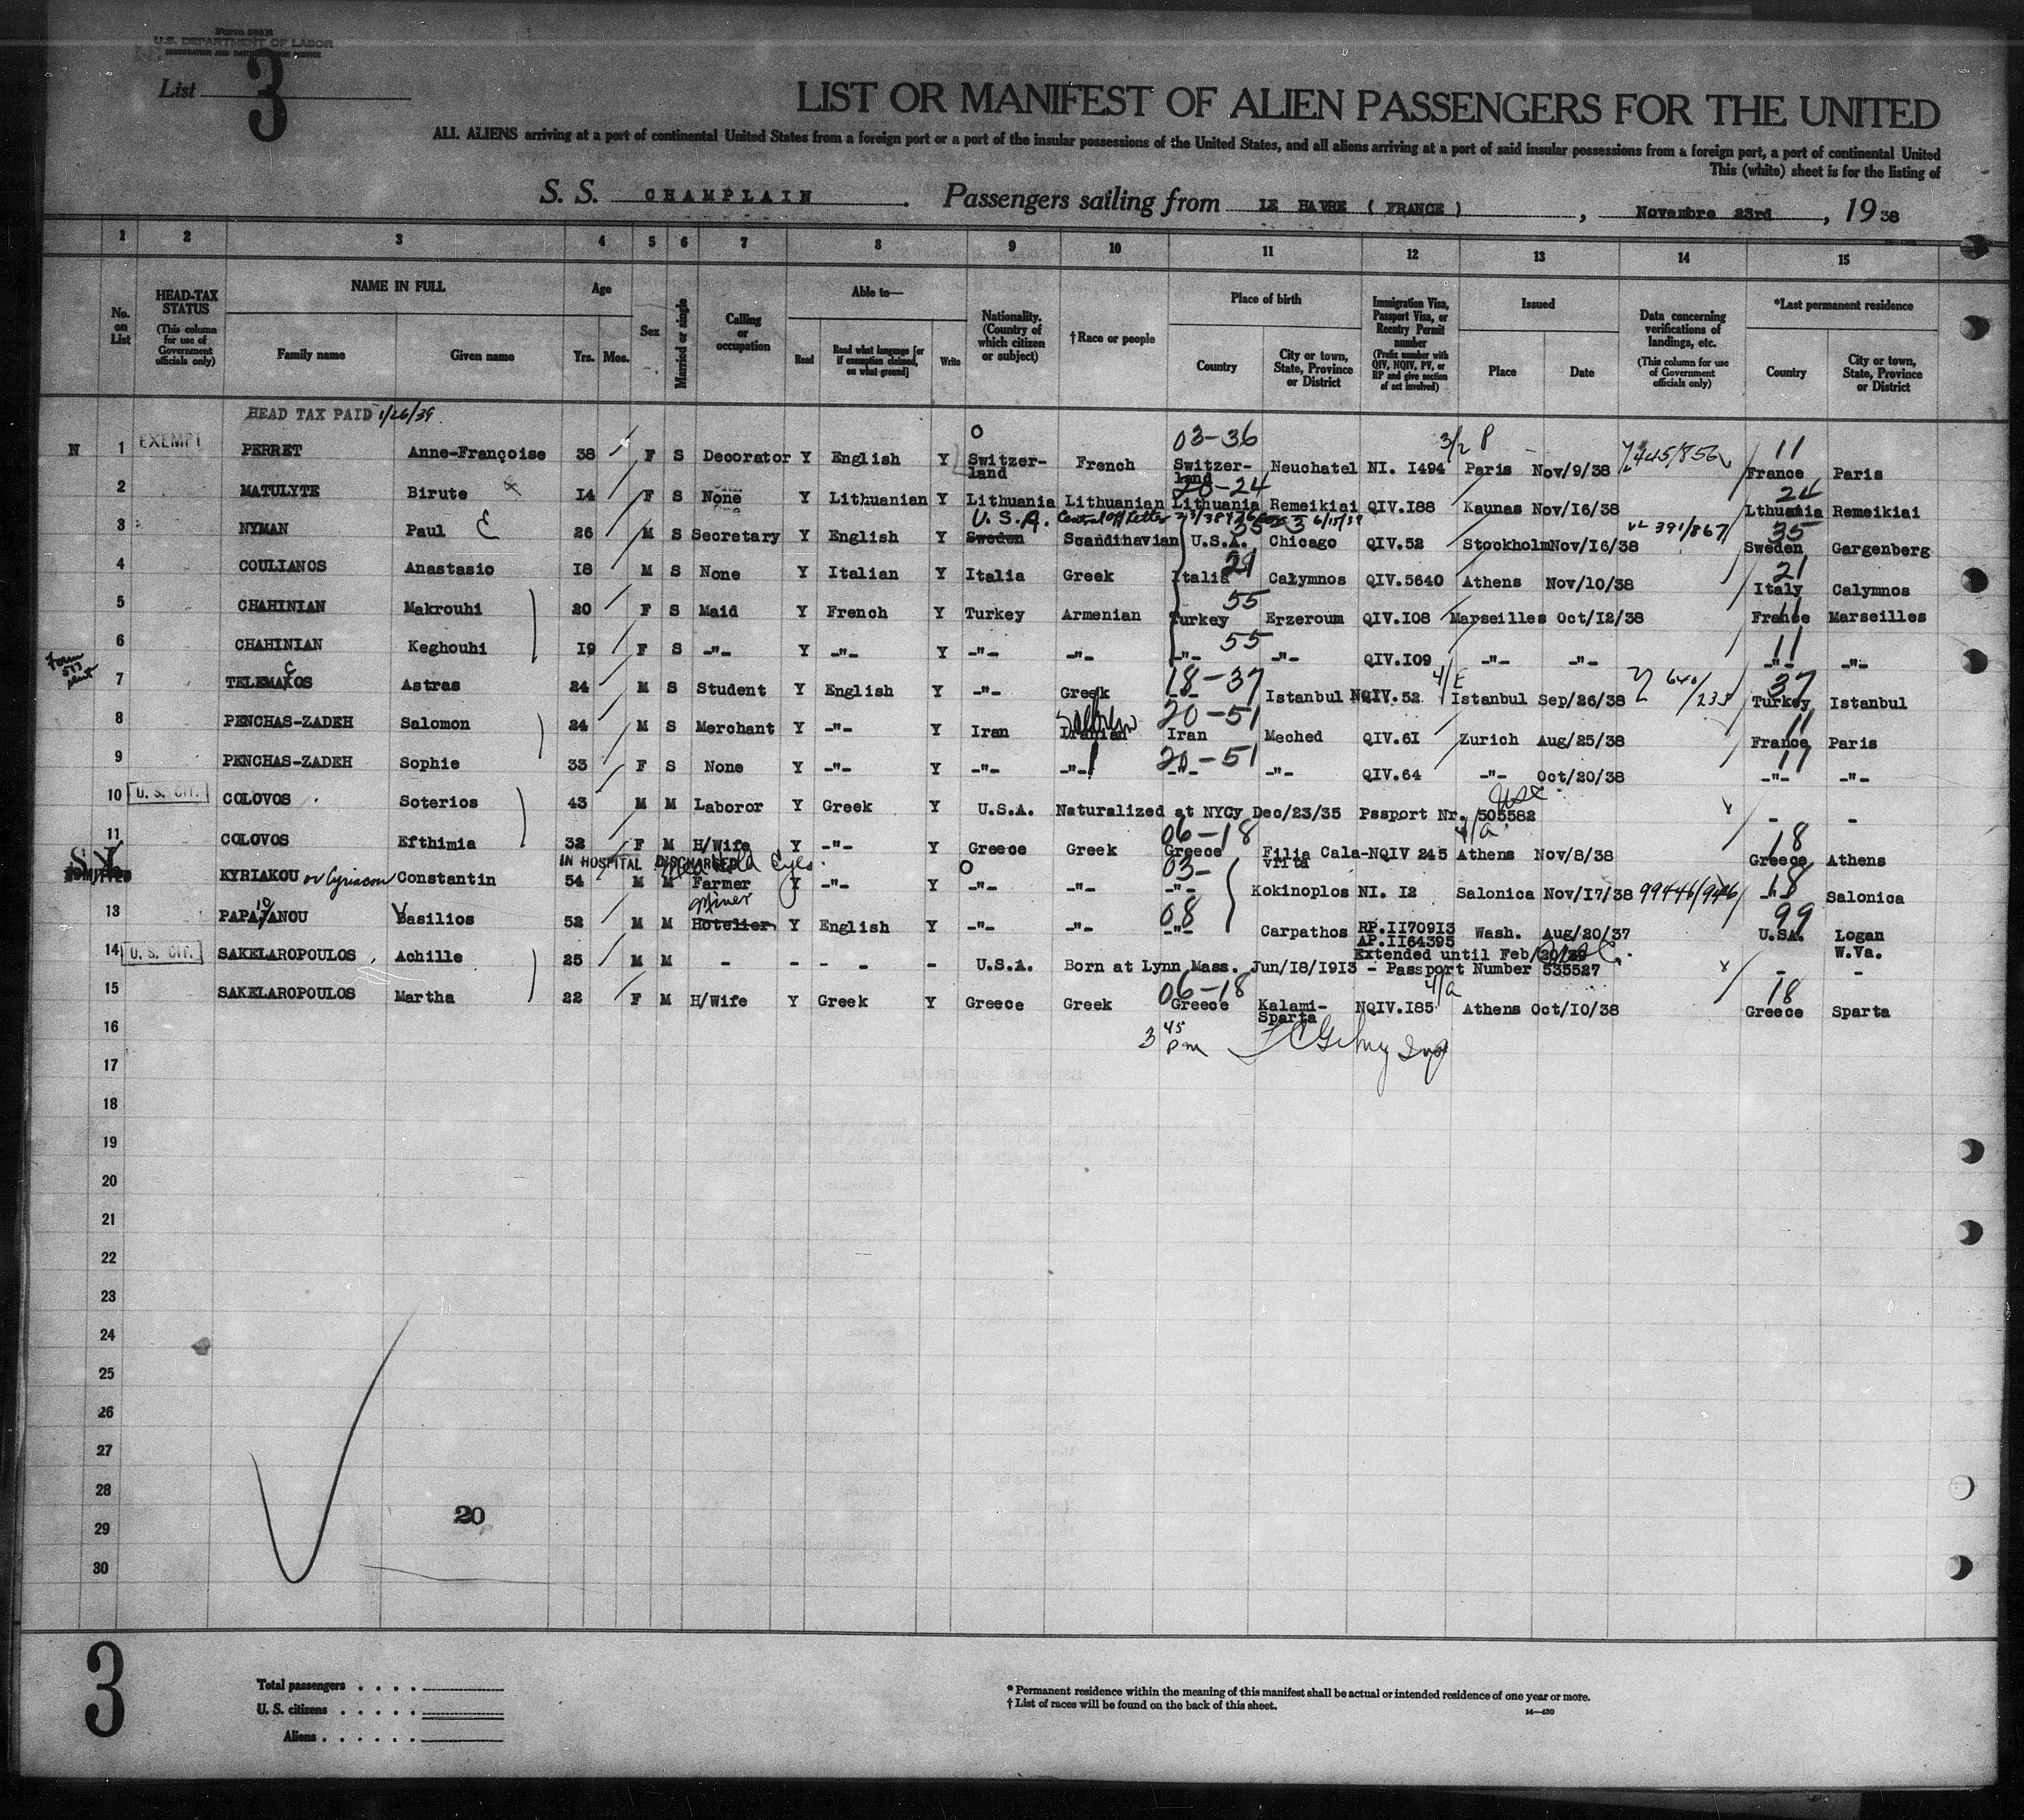 Form 500 B
U.S. DEPARTMENT OF LABOR
IMMIGRATION AND NATURALIZATION SERVICE
List 3
LIST OR MANIFEST OF ALIEN PASSENGERS FOR THE UNITED
ALL ALIENS arriving at a port of continental United States from a foreign port or a port of the insular possessions of the United States, and all aliens arriving at a port of said insular possessions from a foreign port, a port of continental United
This (white) sheet is for the listing of
S. S. CHAMPLAIN . Passengers sailing from LE HAVRE ( FRANCE ) , Novembre 23rd , 19 38
1 2 3 4 5 6 7 8 9 10 11 12 13 14 15
No. on List
HEAD-TAX STATUS (This column for use of Government officials only)
NAME IN FULL
Family name Given name
Age
Yrs. Mos.
Sex
Married or single
Calling or occupation
Able to—
Read Read what language [or if exemption claimed, on what ground] Write
Nationality. (Country of which citizen or subject)
†Race or people
Place of birth
Country City or town, State, Province or District
Immigration Visa, Passport Visa, or Reentry Permit number (Prefix number with QIV, NQIV, PV, or RP and give section of act involved)
Issued
Place Date
Data concerning verifications of landings, etc. (This column for use of Government officials only)
*Last permanent residence
Country City or town, State, Province or District
HEAD TAX PAID 1/26/39.
O 03-36 3/2 P 11
N 1 EXEMPT PERRET Anne-Françoise 38 F S Decorator Y English Y Switzer-land French Switzer-land Neuchatel NI. I494 Paris Nov/9/38 France Paris
20-24 24
2 MATULYTE Birute I4 F S None Y Lithuanian Y Lithuania Lithuanian Lithuania Remeikiai QIV.I88 Kaunas Nov/I6/38 Lthuania Remeikiai
U.S.A. Central Off Letter 6/15/39 35
3 NYMAN Paul 26 M S Secretary Y English Y Sweden Scandinavian U.S.A. Chicago QIV.52 Stockholm Nov/I6/38 391/867 Sweden Gargenberg
21 21
4 COULIANOS Anastasio I8 M S None Y Italian Y Italia Greek Italia Calymnos QIV.5640 Athens Nov/I0/38 Italy Calymnos
55 11
5 CHAHINIAN Makrouhi 20 F S Maid Y French Y Turkey Armenian Turkey Erzeroum QIV.I08 Marseilles Oct/I2/38 France Marseilles
55 11
6 CHAHINIAN Keghouhi I9 F S -"- Y -"- Y -"- -"- -"- -"- QIV.I09 -"- -"- -"- -"-
Form 517
C 18-37 4/E 37
7 TELEMAKOS Astras 24 M S Student Y English Y -"- Greek -"- Istanbul NQIV.52 Istanbul Sep/26/38 640/235 Turkey Istanbul
20-51 11
8 PENCHAS-ZADEH Salomon 24 M S Merchant Y -"- Y Iran Iranian Iran Meched QIV.6I Zurich Aug/25/38 France Paris
20-51 11
9 PENCHAS-ZADEH Sophie 33 F S None Y -"- Y -"- -"- -"- -"- QIV.64 -"- Oct/20/38 -"- -"-
10 U. S. CIT. COLOVOS Soterios 43 M M Laboror Y Greek Y U.S.A. Naturalized at NYCy Dec/23/35 Pssport Nr. 505582 - -
06-18 4/a 18
11 COLOVOS Efthimia 32 F M H/Wife Y -"- Y Greece Greek Greece Filia Cala-vrita NQIV 245 Athens Nov/8/38 Greece Athens
IN HOSPITAL DISCHARGED
O 03- 18
S I ADMITTED KYRIAKOU or Cyriacou Constantin 54 M M Farmer Y -"- Y -"- -"- -"- Kokinoplos NI. I2 Salonica Nov/I7/38 -"- Salonica
Miner 08 99
13 PAPAJANOU Basilios 52 M M Hotelier Y English Y -"- -"- -"- Carpathos RP.II70913 AP.II64395 Wash. Aug/20/37 U.SA. Logan W.Va.
Extended until Feb/20/39
14 U. S. CIT. SAKELAROPOULOS Achille 25 M M - - - - - U.S.A. Born at Lynn Mass. Jun/I8/I9I3 - Passport Number 535527 - -
06-18 4/a 18
15 SAKELAROPOULOS Martha 22 F M H/Wife Y Greek Y Greece Greek Greece Kalami-Sparta NQIV.I85 Athens Oct/I0/38 Greece Sparta
16 3 45 Pm
17
18
19
20
21
22
23
24
25
26
27
28
20
29
30
3
Total passengers . . . .
U. S. citizens . . . . .
Aliens . . . . . .
* Permanent residence within the meaning of this manifest shall be actual or intended residence of one year or more.
† List of races will be found on the back of this sheet.
14—430